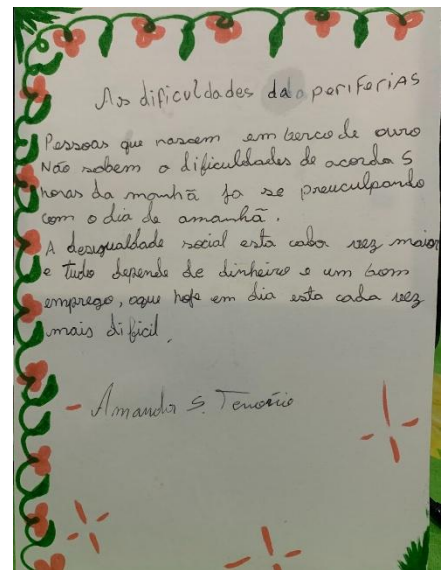 As dificuldades dala periferias
Pessoas que nascem em berco de ouro
Não sabem a dificuldades de acorda 5
horas da manhã ja se preuculpando
com o dia de amanhã.
A desigualdade social esta cada vez maior
e tudo depende de dinheiro e um bom
emprego, oque hoje em dia esta cada vez
mais dificil.
Amanda S. Tenorio